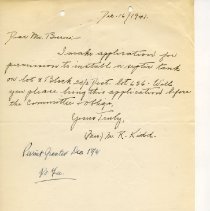 Dec. 16/1941.
Dear Mr. Burns:
I make application for
permission to install a septic tank
on lot 2 Block 26/ Dist. lot 686. Will
you please bring this application before
the Committee & oblige
Yours Truly.
(Mrs) M. K. Kidd.
Permit Granted Dec 1941